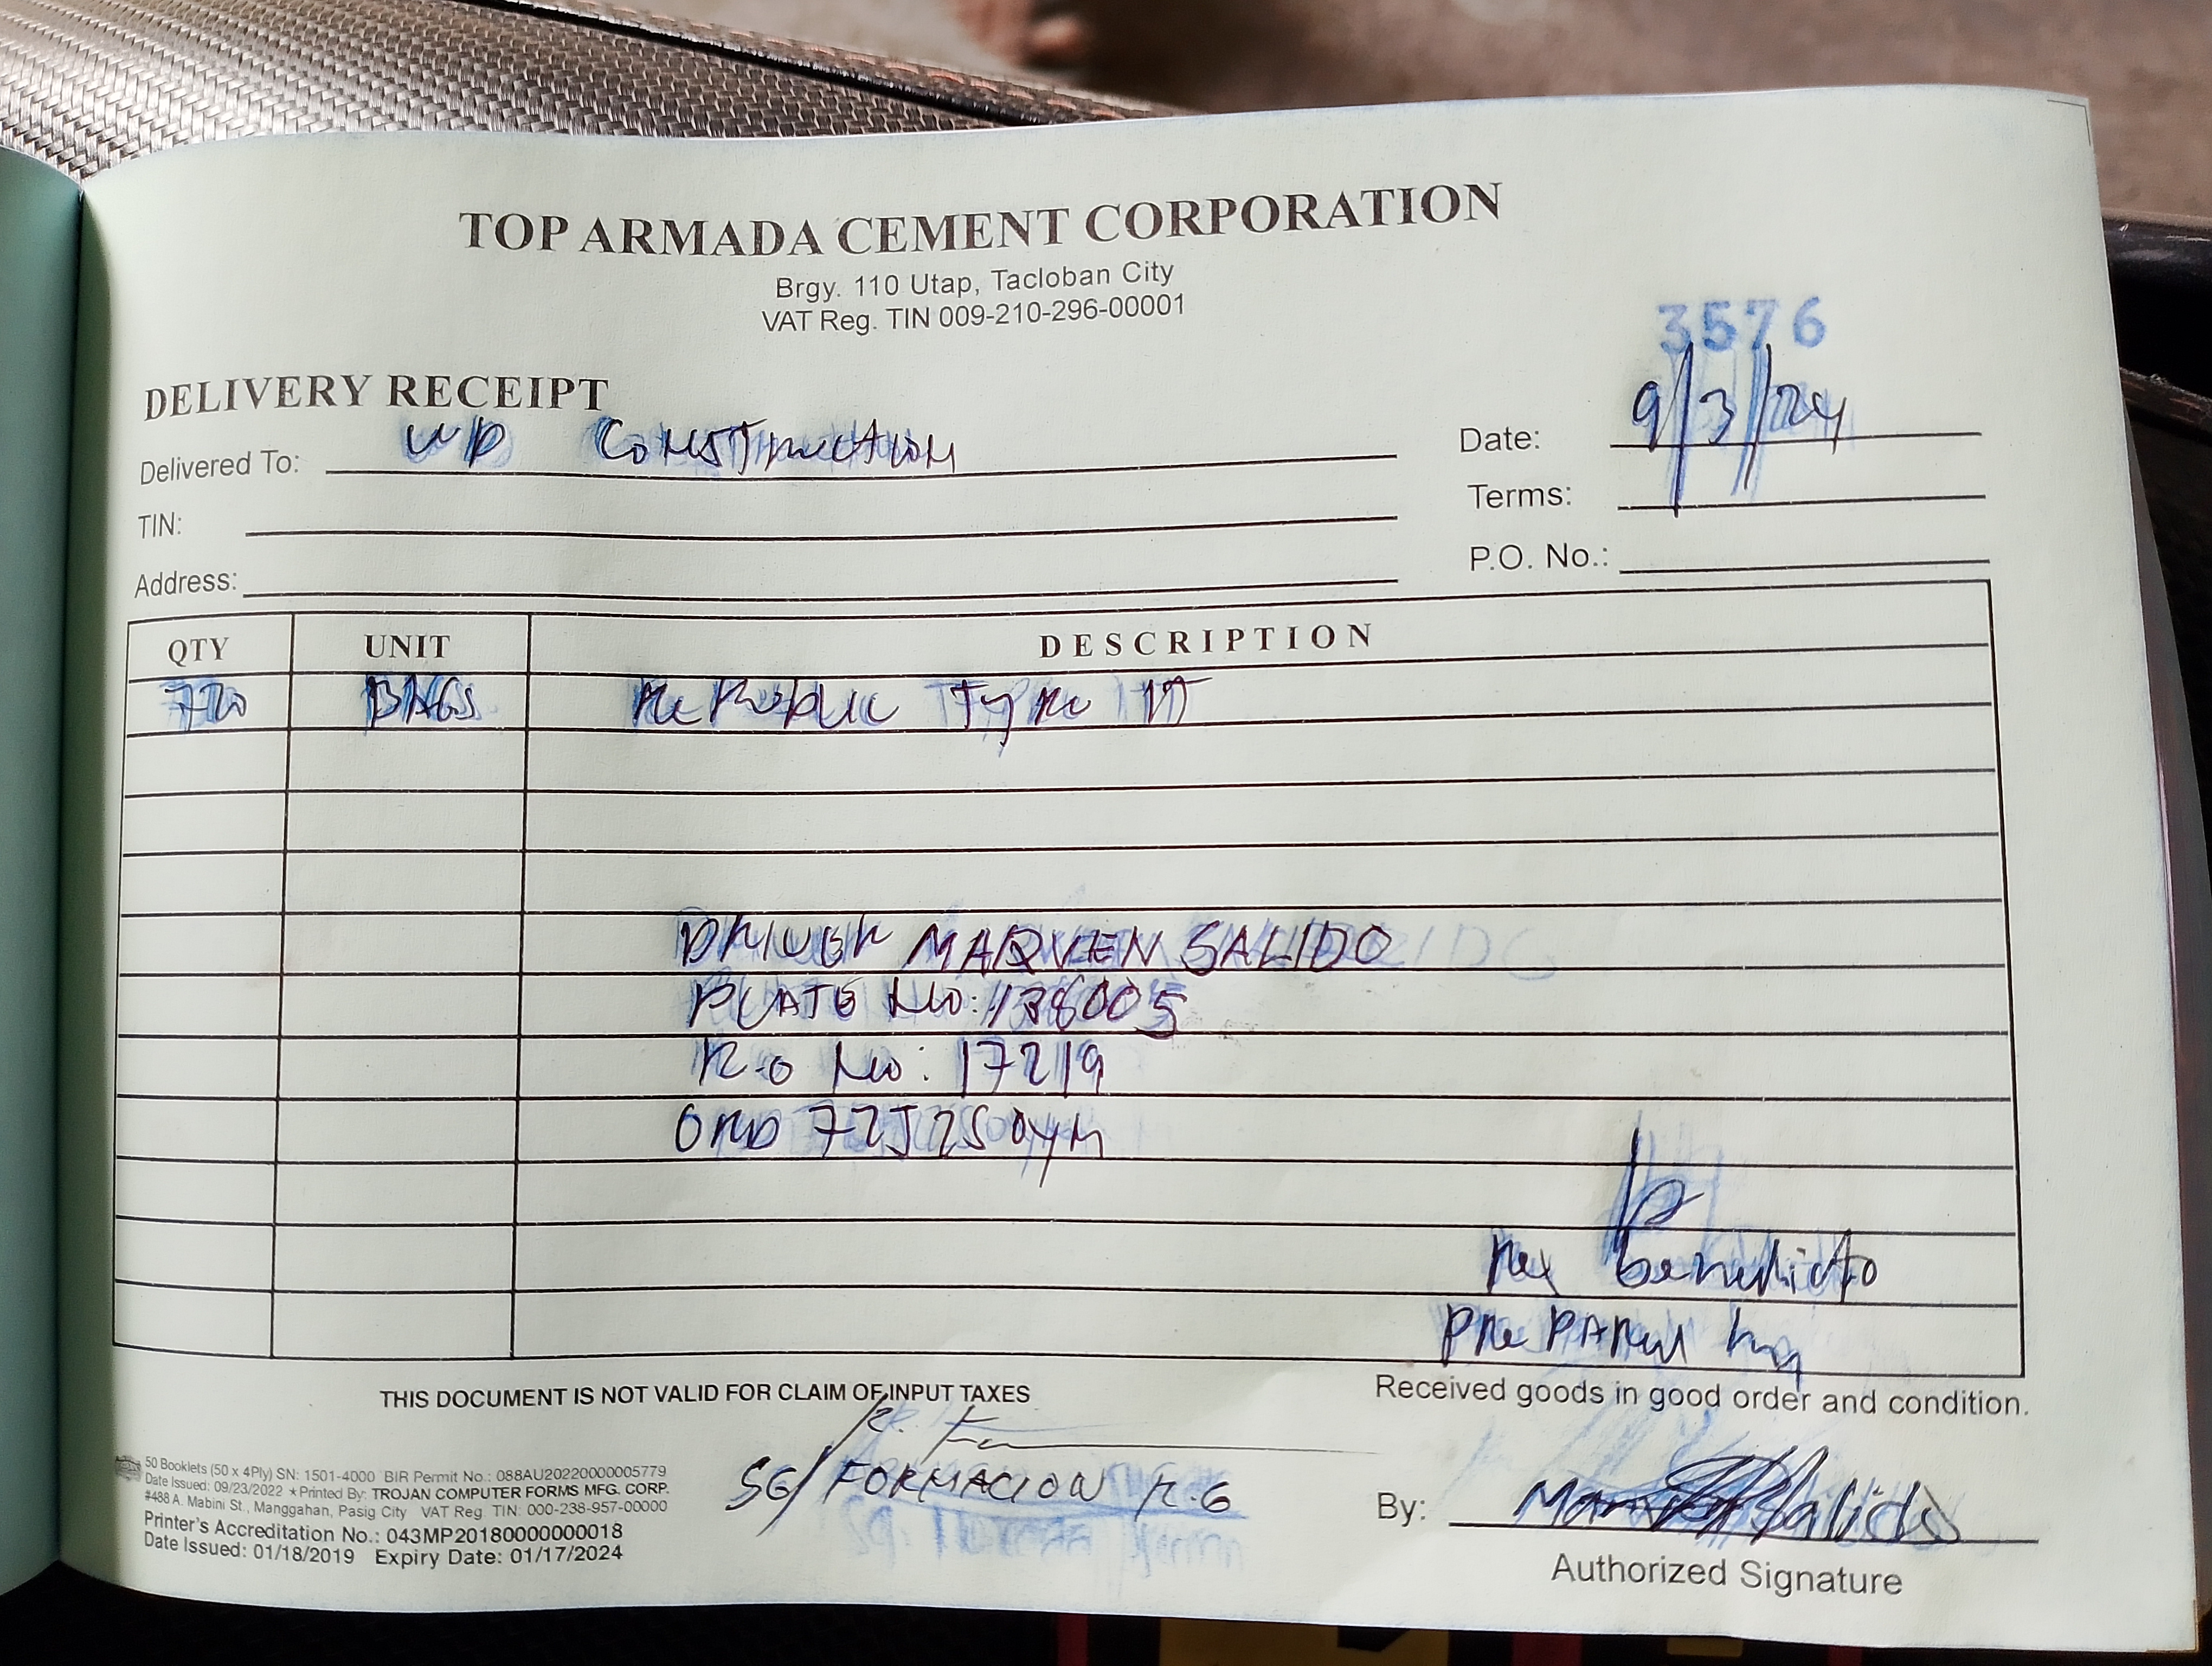 TOP ARMADA CEMENT CORPORATION
Brgy. 110 Utap, Tacloban City
VAT Reg. TIN 009-210-296-00001
3576
DELIVERY RECEIPT
Date: 9/3/24
Delivered To: WD Construction
Terms:
TIN:
P.O. No.:
Address:
QTY UNIT DESCRIPTION
720 BAGS Republic Type 1T
DRIVER MARVEN SALIDO
PLATE No: 138005
R.O No: 17219
Rex benedicto
Prepared by
THIS DOCUMENT IS NOT VALID FOR CLAIM OF INPUT TAXES
Received goods in good order and condition.
50 Booklets (50 x 4Ply) SN: 1501-4000 BIR Permit No.: 088AU20220000005779
Date Issued: 09/23/2022 ★Printed By: TROJAN COMPUTER FORMS MFG. CORP.
#488 A. Mabini St., Manggahan, Pasig City VAT Reg. TIN: 000-238-957-00000
Printer's Accreditation No.: 043MP20180000000018
Date Issued: 01/18/2019 Expiry Date: 01/17/2024
SG/ FORMACION R.G
By: Salido
Authorized Signature